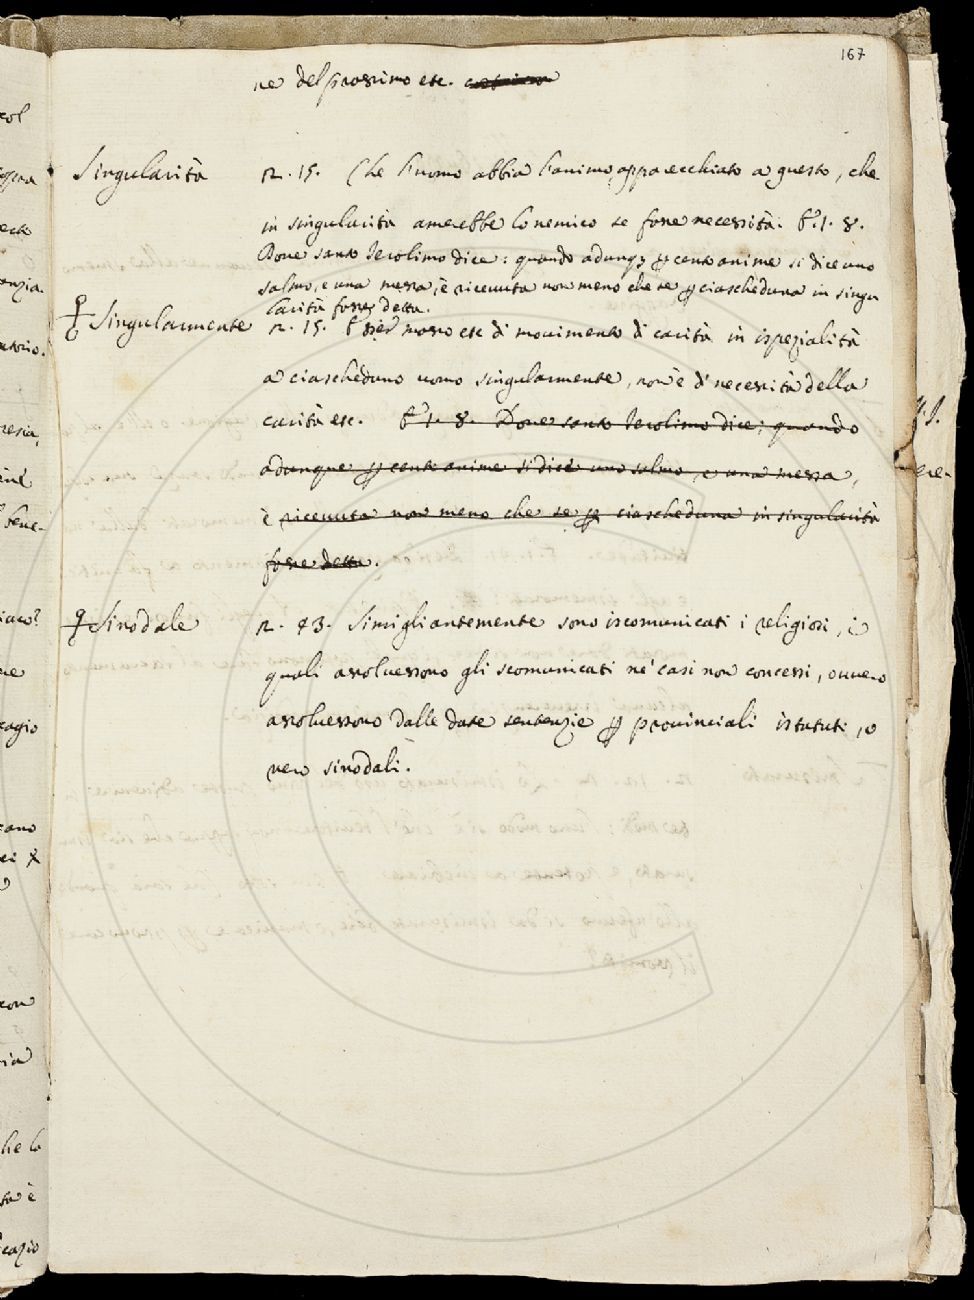 167
ne del prossimo etc.
Singularità n. 15. Che l'uomo abbia l'animo apparecchiato a questo, che
in singularità amerebbe lo nemico se fosse necessità. E 1. 8.
Dove santo Jerolimo dice: quando adunq; ꝑ cento anime si dice uno
salmo, e una messa, è ricevuta non meno che se ꝑ ciascheduna in singu
larità fosse detta.
Singularmente n. 15. messo etc di movimento di carità in ispezialità
a ciascheduno uomo singularmente, non è di necessità della
carità etc. E 1. 8. Dove santo Jerolimo dice: quando
adunque ꝑ cento anime si dice uno salmo, e una messa,
è ricevuta non meno che se ꝑ ciascheduna in singularità
fosse detta.
Sinodale n. 43. Simigliantemente sono iscomunicati i religiosi, i
quali assolvessono gli scomunicati ne' casi non concessi, ovvero
assolvessono dalle date sentenzie ꝑ provinciali istatuti, o
vero sinodali.